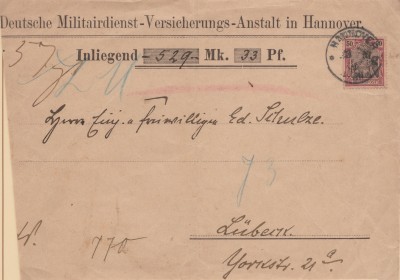 Deutsche Militairdienst-Versicherungs-Anstalt in Hannover.
Inliegend -529- Mk. 33 Pf.
HANNOVER
Herrn Einj. u. Freiwilligen Ed. Schulze.
73
W.
77a
Lübeck.
Yorkstr. 21a.